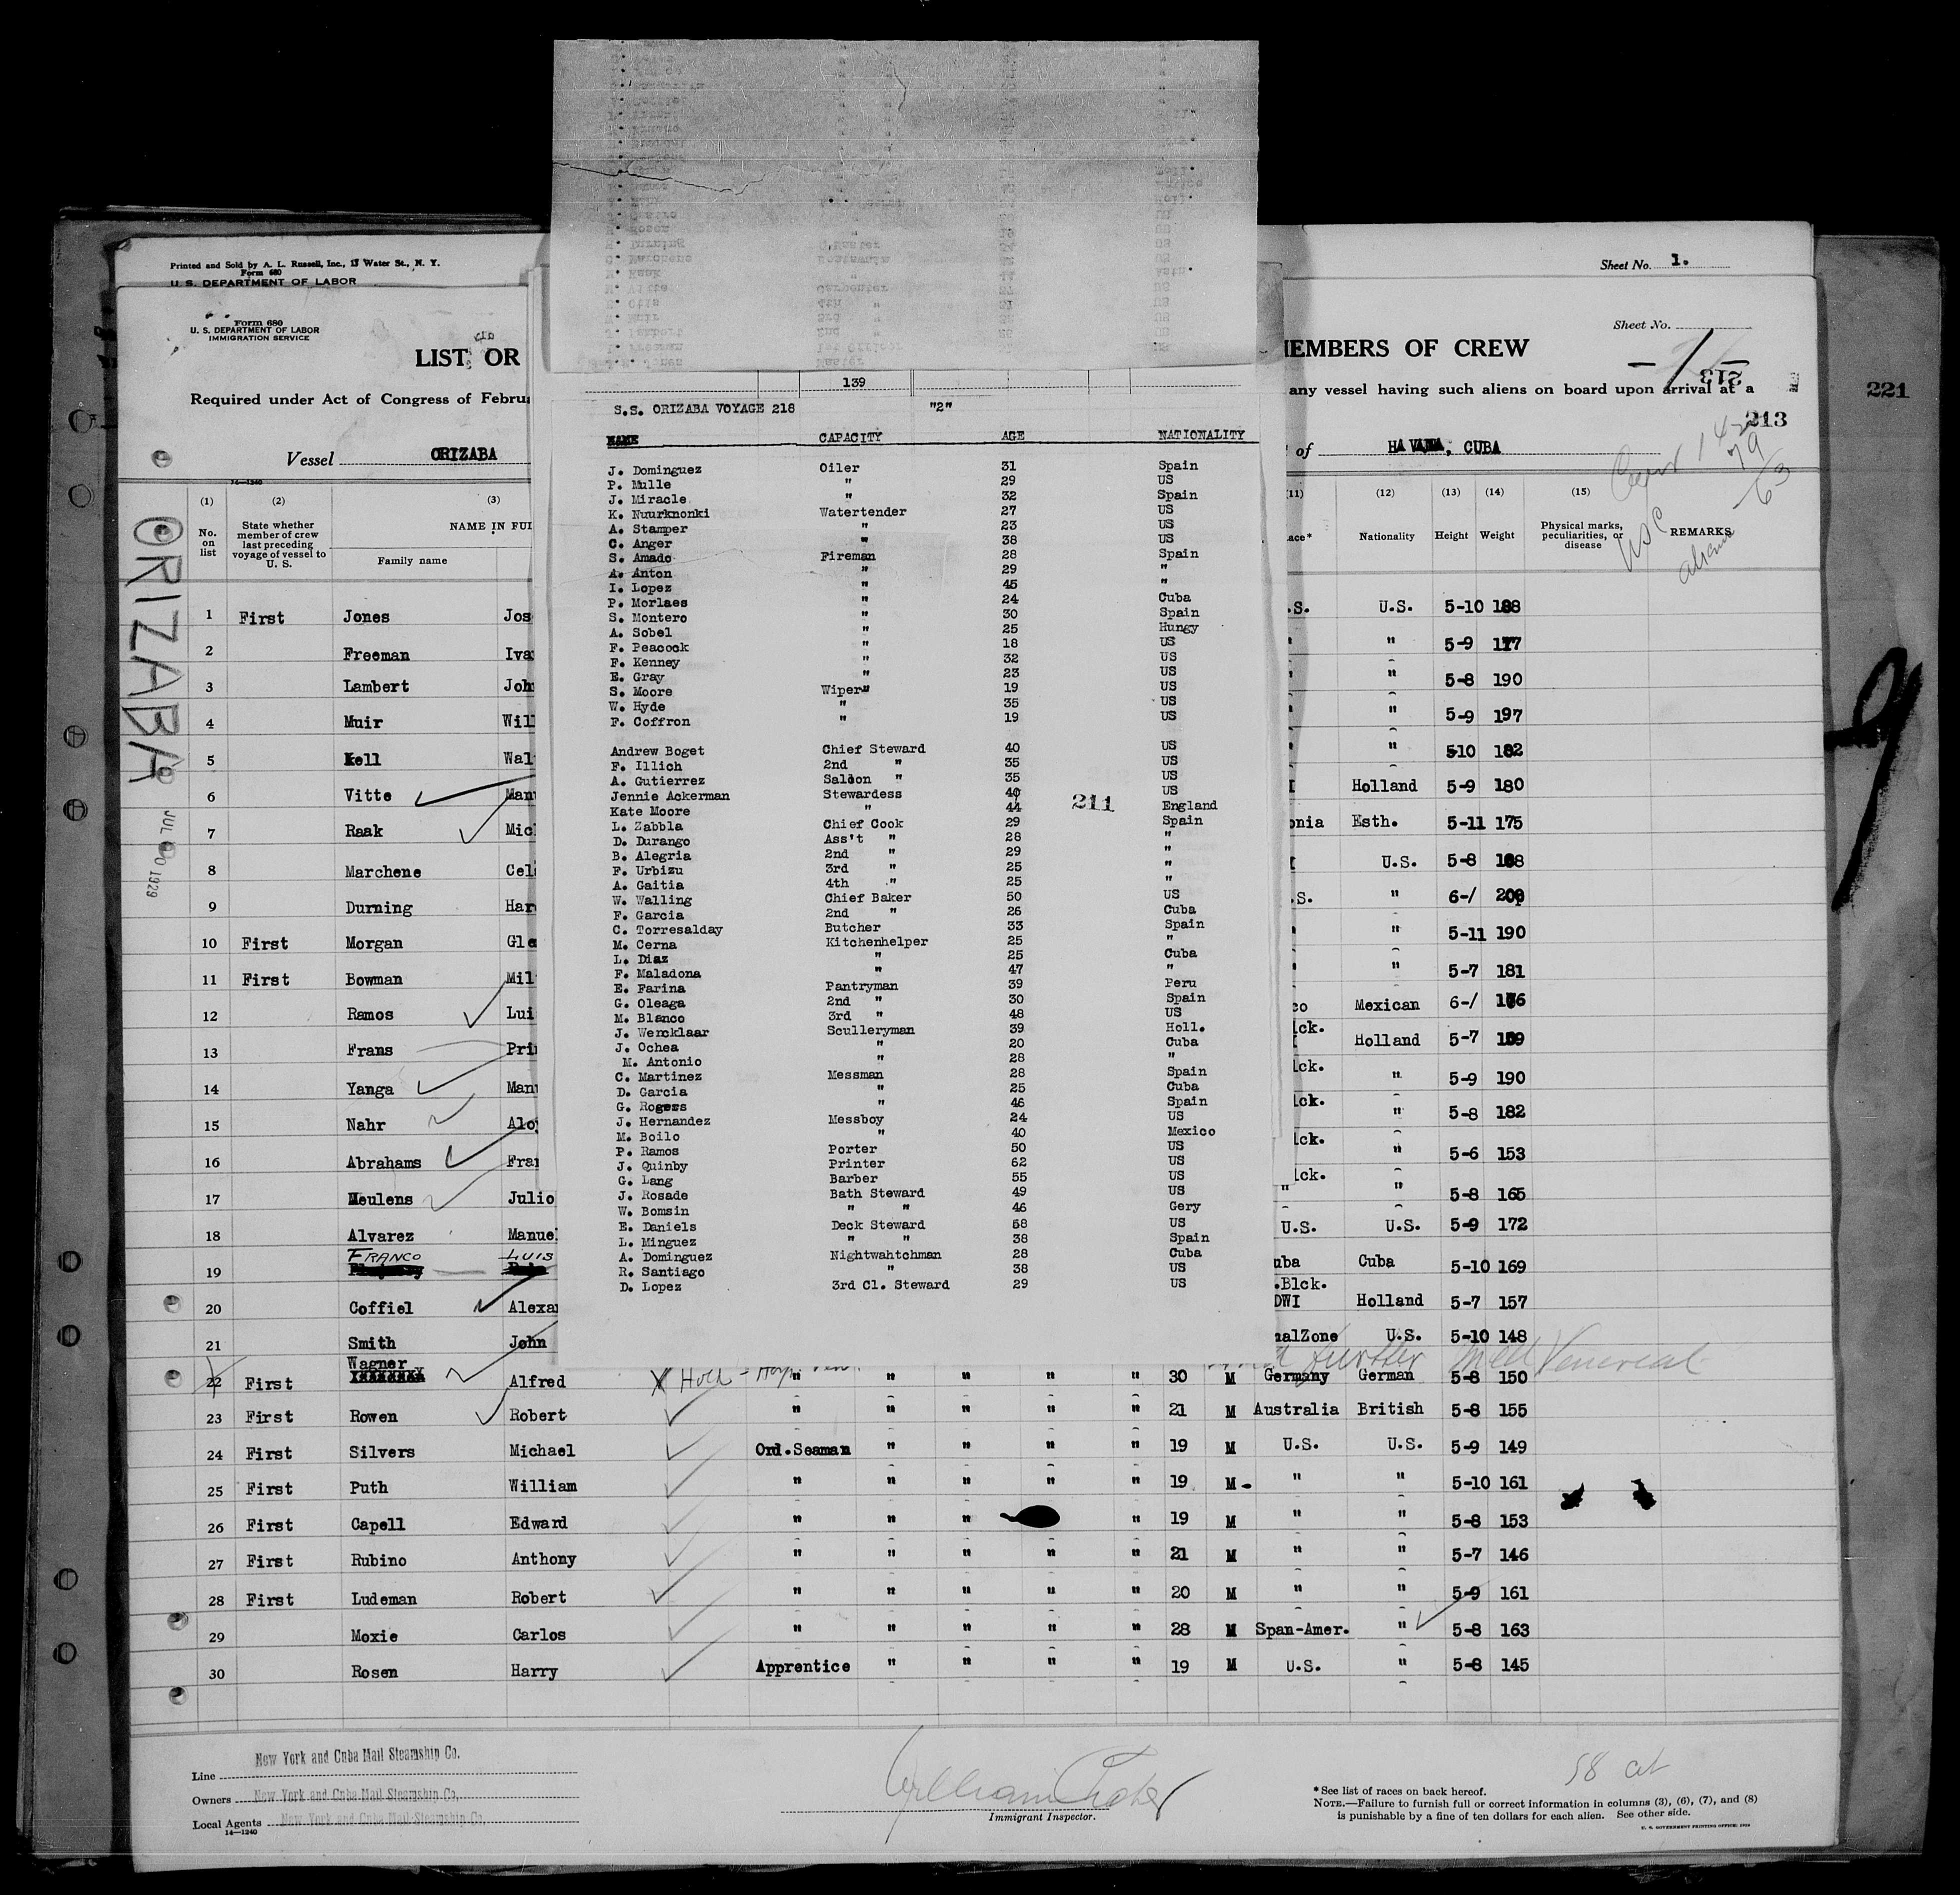 Printed and Sold by A. L. Russell, Inc., 17 Water St., N. Y.
Form 680
U. S. DEPARTMENT OF LABOR
Sheet No. 1.
Form 680
U. S. DEPARTMENT OF LABOR
IMMIGRATION SERVICE
Sheet No.
LIST OR
MEMBERS OF CREW
213
Required under Act of Congress of Februa
any vessel having such aliens on board upon arrival at a
221
213
Vessel ORIZABA
of HAVANA, CUBA
14-1240
(1) (2) (3)
(11) (12) (13) (14) (15)
No. on list
State whether member of crew last preceding voyage of vessel to U. S.
NAME IN FUL
Family name
ace* Nationality Height Weight
Physical marks, peculiarities, or disease
REMARKS
USC
aliens
ORIZABA
1929
139
S.S. ORIZABA VOYAGE 218 "2"
NAME CAPACITY AGE NATIONALITY
J. Dominguez Oiler 31 Spain
P. Mulle " 29 US
J. Miracle " 32 Spain
K. Nuurknonki Watertender 27 US
A. Stamper " 23 US
C. Anger " 38 US
S. Amado Fireman 28 Spain
A. Anton " 29 "
I. Lopez " 45 "
P. Morlaes " 24 Cuba
S. Montero " 30 Spain
A. Sobel " 25 Hungy
F. Peacock " 18 US
F. Kenney " 32 US
E. Gray " 23 US
S. Moore Wiper" 19 US
W. Hyde " 35 US
F. Coffron " 19 US
Andrew Boget Chief Steward 40 US
F. Illich 2nd " 35 US
A. Gutierrez Saloon " 35 US
Jennie Ackerman Stewardess 40 US
Kate Moore " 44 England
211
L. Zabbla Chief Cook 29 Spain
D. Durango Ass't " 28 "
B. Alegria 2nd " 29 "
F. Urbizu 3rd " 25 "
A. Gaitia 4th " 25 "
W. Walling Chief Baker 50 US
F. Garcia 2nd " 26 Cuba
C. Torresalday Butcher 33 Spain
M. Cerna Kitchenhelper 25 "
L. Diaz " 25 Cuba
F. Maladona " 47 "
E. Farina Pantryman 39 Peru
G. Oleaga 2nd " 30 Spain
M. Blanco 3rd " 48 US
J. Wercklaar Sculleryman 39 Holl.
J. Ochea " 20 Cuba
M. Antonio " 28 "
C. Martinez Messman 28 Spain
D. Garcia " 25 Cuba
G. Rogers " 46 Spain
J. Hernandez Messboy 24 US
M. Boilo " 40 Mexico
P. Ramos Porter 50 US
J. Quinby Printer 62 US
G. Lang Barber 55 US
J. Rosade Bath Steward 49 US
W. Bomsin " " 46 Gery
E. Daniels Deck Steward 58 US
L. Minguez " " 38 Spain
A. Dominguez Nightwahtchman 28 Cuba
R. Santiago " 38 US
D. Lopez 3rd Cl. Steward 29 US
1 First Jones Jos .S. U.S. 5-10 188
2 Freeman Iva " " 5-9 177
3 Lambert Joh " " 5-8 190
4 Muir Will " " 5-9 197
5 Kell Wal " " 5-10 182
6 Vitte Manu Holland 5-9 180
7 Raak Mic onia Esth. 5-11 175
8 Marchene Cel U.S. 5-8 168
9 Durning Har .S. " 6-/ 200
10 First Morgan Gle " " 5-11 190
11 First Bowman Mil " " 5-7 181
12 Ramos Lui co Mexican 6-/ 176
13 Frans Pri lck. Holland 5-7 159
14 Yanga Manu lck. " 5-9 190
15 Nahr Aloy lck. " 5-8 182
16 Abrahams Fran lck. " 5-6 153
17 Meulens Julio lck. " " 5-8 165
18 Alvarez Manuel U.S. U.S. 5-9 172
19 FRANCO LUIS uba Cuba 5-10 169
20 Coffiel Alexa .Blck. DWI Holland 5-7 157
21 Smith John nalZone U.S. 5-10 148
further med Venereal
22 First Wagner Alfred X Hold - " " " " " 30 M Germany German 5-8 150
23 First Rowen Robert " " " " " 21 M Australia British 5-8 155
24 First Silvers Michael Ord.Seaman " " " " 19 M U.S. U.S. 5-9 149
25 First Puth William " " " " " 19 M " " 5-10 161
26 First Capell Edward " " " " 19 M " " 5-8 153
27 First Rubino Anthony " " " " " 21 M " " 5-7 146
28 First Ludeman Robert " " " " " 20 M " " 5-9 161
29 Moxie Carlos " " " " " 28 M Span-Amer. " 5-8 163
30 Rosen Harry Apprentice " " " " 19 M U.S. " 5-8 145
Line New York and Cuba Mail Steamship Co.
Owners New York and Cuba Mail Steamship Co.
Local Agents New York and Cuba Mail Steamship Co.
14-1240
Immigrant Inspector.
*See list of races on back hereof.
NOTE.—Failure to furnish full or correct information in columns (3), (6), (7), and (8)
is punishable by a fine of ten dollars for each alien. See other side.
U. S. GOVERNMENT PRINTING OFFICE: 1929